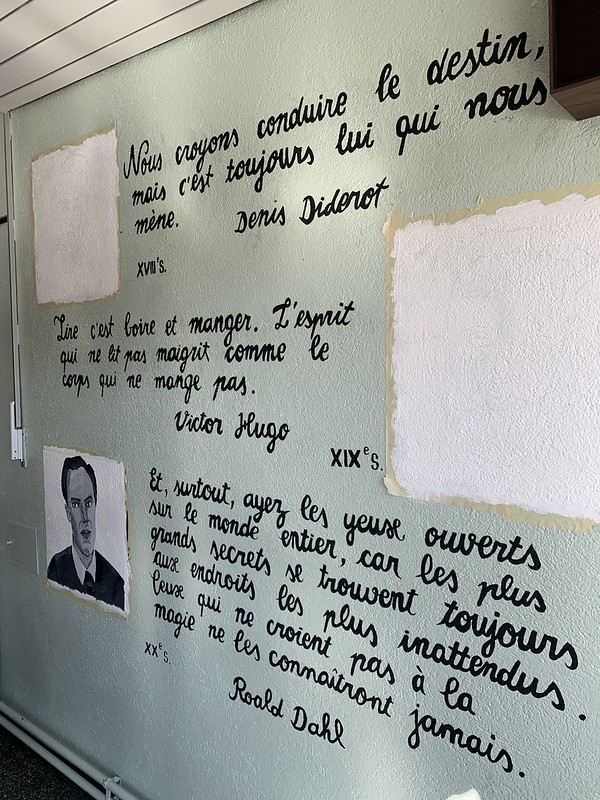 Nous croyons conduire le destin,
mais c'est toujours lui qui nous
mène. Denis Diderot
XVIII's.
Lire c'est boire et manger. L'esprit
qui ne lit pas maigrit comme le
corps qui ne mange pas.
Victor Hugo
XIXe s.
Et, surtout, ayez les yeux ouverts
sur le monde entier, car les plus
grands secrets se trouvent toujours
aux endroits les plus inattendus.
Ceux qui ne croient pas à la
magie ne les connaîtront jamais.
XXe s.
Roald Dahl